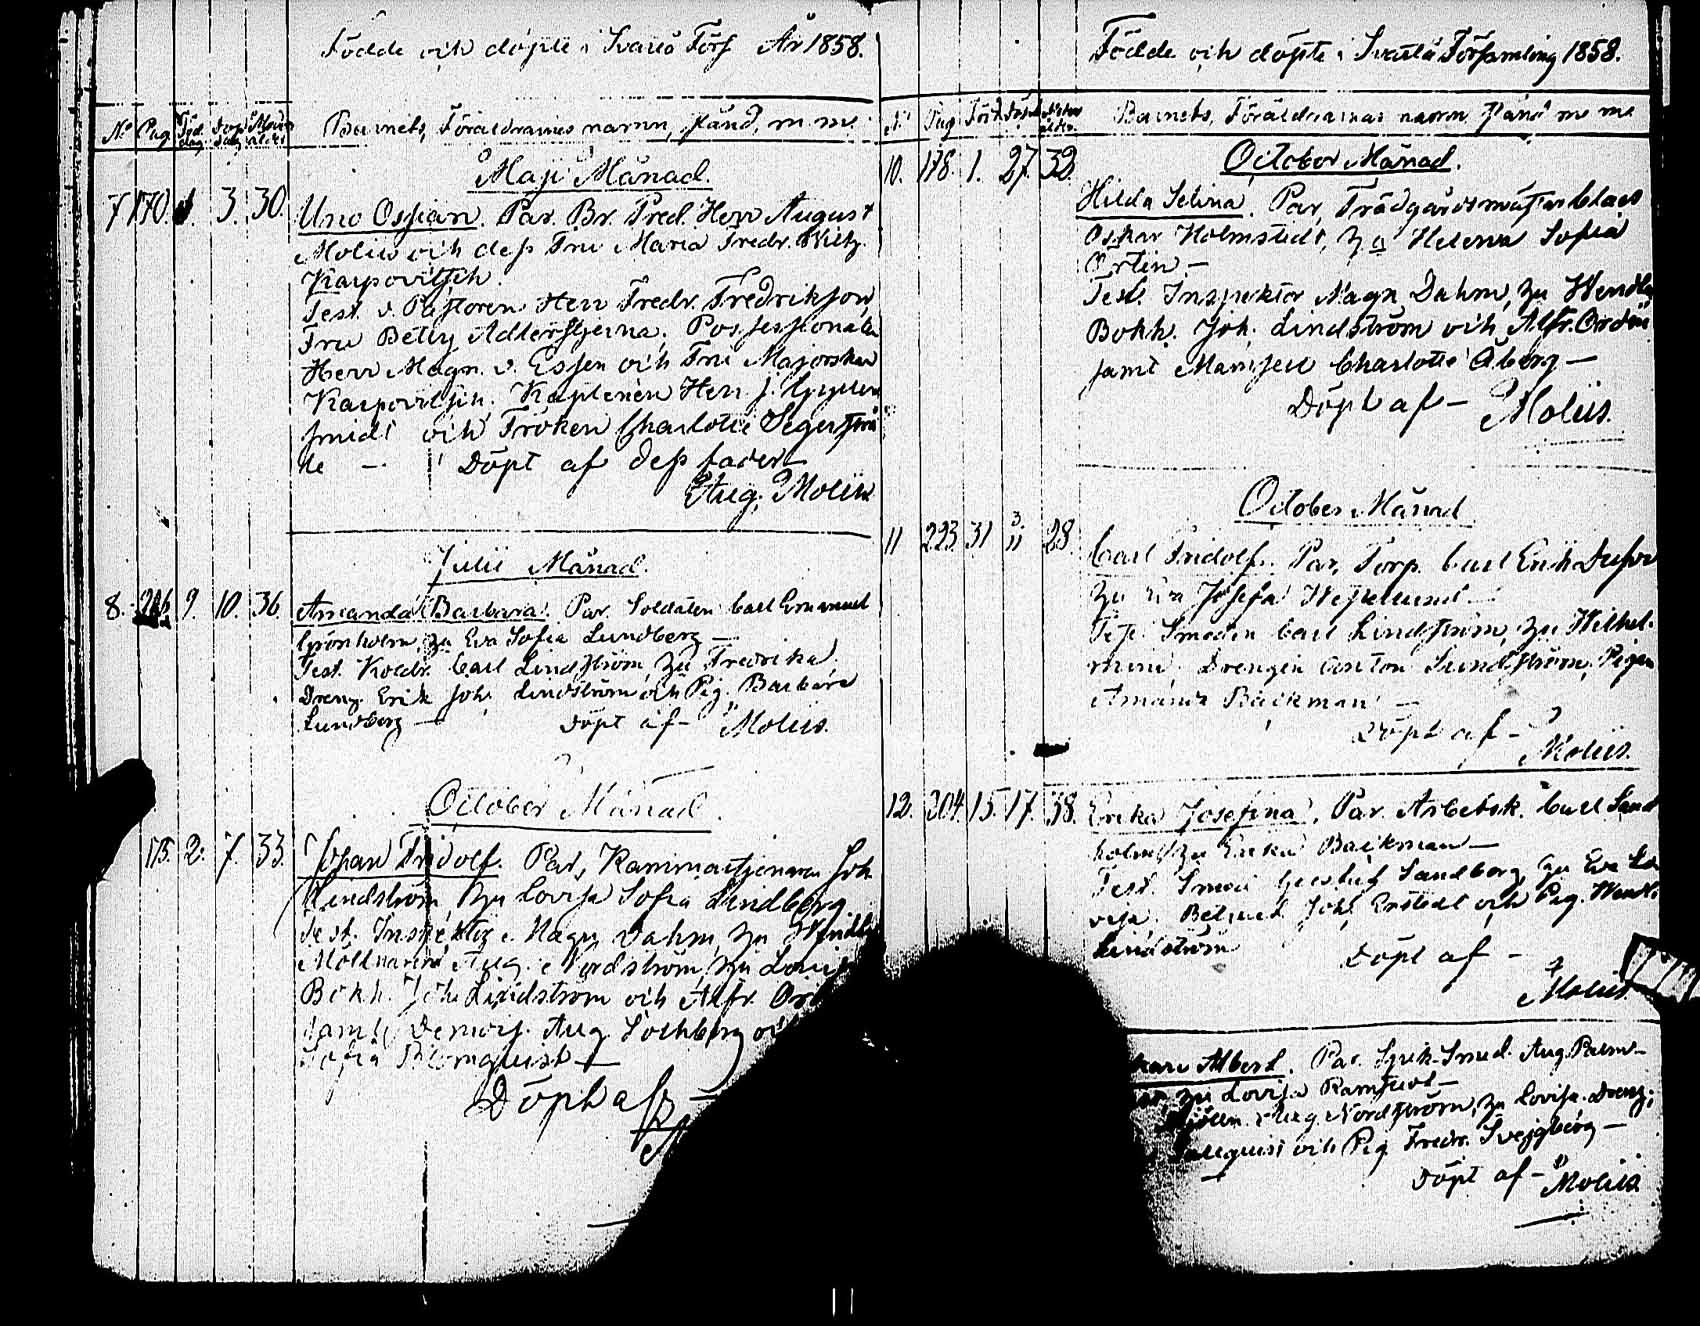 Födde och döpte i Svartå Förs År 1858.
No Pag Föd. dag Döp. dag Moders ålder Barnets, Föräldrarnas namn, stånd, m me
Maji Månad.
7 170. 1. 3. 30. Uno Ossian. Par. Br. Pred. Herr August
Molin och dess Fru Maria Fredr. Wilh.
Karpovitsch.
Test. v. Pastoren Herr Fredr. Fredrikson,
Fru Betty Adlerstjerna, Possessionaten
Herr Magn. v. Essen och Fru Majorskan
Karpovitsch. Kaptenen Herr J.
smidt och Fröken Charlotte Segerstrå
le — Döpt af dess fader—
Aug. Moliis
Julii Månad.
8. 9. 10. 36. Amanda Barbara. Par. Soldaten Carl Emanuel
Grönholm, hu Eva Sofia Lundberg —
Test. Koldr. Carl Lindström hu Fredrika,
Dreng Erik Joh. Lindström och Pig. Barbara
Lundberg — Döpt af — Moliis.
October Månad.
173. 2. 7. 33. Johan Fridolf. Par, Kammartjenaren Joh
Lindström hu Lovisa Sofia Lindberg
Test. Inspektor Magn. Dahm, hu Wendla
Möllnaren Aug. Nordström, hu Lovisa
Bokh. Joh. Lindström och Alfr. Or
samt Demois. Aug. Sohlberg och
Sofia Blomquist —
Döpt af —
Födde och döpte i Svartå Församling 1858.
No Pag Född Döpt Moders ålder Barnets, Föräldrarnas namn stånd m me
October Månad.
10. 178. 1. 27. 32. Hilda Selina. Par, Trädgårdsmästar Claes
Oskar Holmstedt, hu Helena Sofia
Örtin —
Test. Inspektor Magn Dahm, hu Wendla
Bokh. Joh. Lindström och Alfr. Ordin
samt Mamsell Charlotte Åberg —
Döpt af — Moliis.
October Månad
11 223 31 3/11 28. Carl Fridolf. Par, Torp. Carl Erik
hu Eva Josefa
Test. Smeden Carl Lindström, hu Wilhel-
mina, Drengen Anton Lindström, Pigan
Amanda Bäckman —
Döpt af — Moliis.
12. 204. 15. 17. 38. Erika Josefina, Par. Arbetsk. Carl Sand
holm, hu Erika Bäckman —
Test. Smed Sandberg, hu Eva Lo
visa, Betjent Joh. Enstedt och Pig. Wend
Lindström Döpt af —
Moliis.
Albert. Par. Spik-Smed. Aug. Palm-
hu Lovisa Ramstedt —
Aug. Nordström, hu Lovisa. Dreng.
och Pig Fredr. Svejgberg —
Döpt af — Moliis